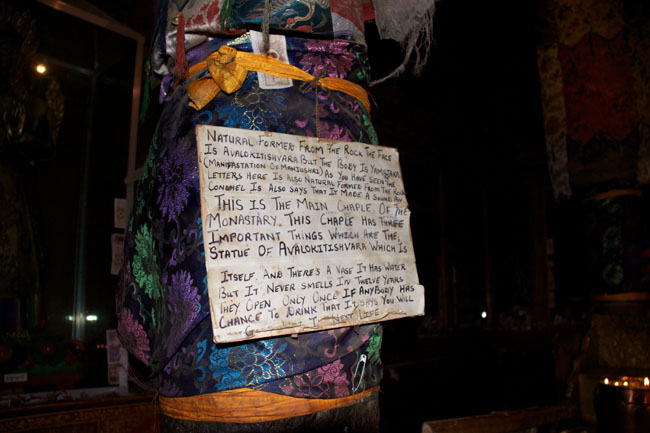 NATURAL FORMED FROM THE ROCK THE FACE
IS AVALOKITISHVARA BUT THE BODY IS YAMSTAKA
(MANIFASTATION OF MANJUSHRI) AS YOU HAVE SEEN THE
LETTERS HERE IS ALSO NATURAL FORMED FROM THE ROCK
IS ALSO SAYS THAT IT MADE A SOUND
THIS IS THE MAIN CHAPLE OF THE
MONASTARY. THIS CHAPLE HAS THREE
IMPORTANT THINGS WHICH ARE THE
STATUE OF AVALOKITISHVARA WHICH IS
ITSELF. AND THERE'S A VASE IT HAS WATER
BUT IT NEVER SMELLS IN TWELVE YEARS
THEY OPEN ONLY ONCE IF ANYBODY HAS
CHANCE TO DRINK THAT IT SAYS YOU WILL
NEXT LIFE